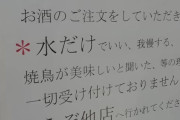 お酒のご注文をしていただき
*水だけでいい、我慢する、
焼鳥が美味しいと聞いた、等の
一切受け付けておりません
他店へ行かれてください